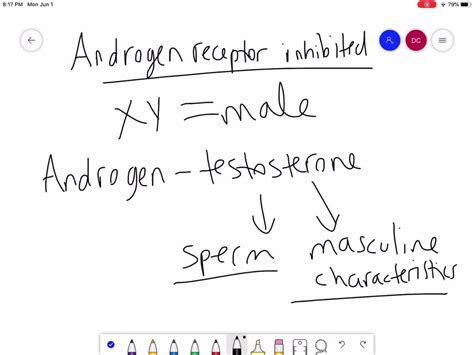 8:17 PM Mon Jun 1
79%
Androgen receptor inhibited
DC
XY = male
Androgen - testosterone
sperm
masculine
characteristics